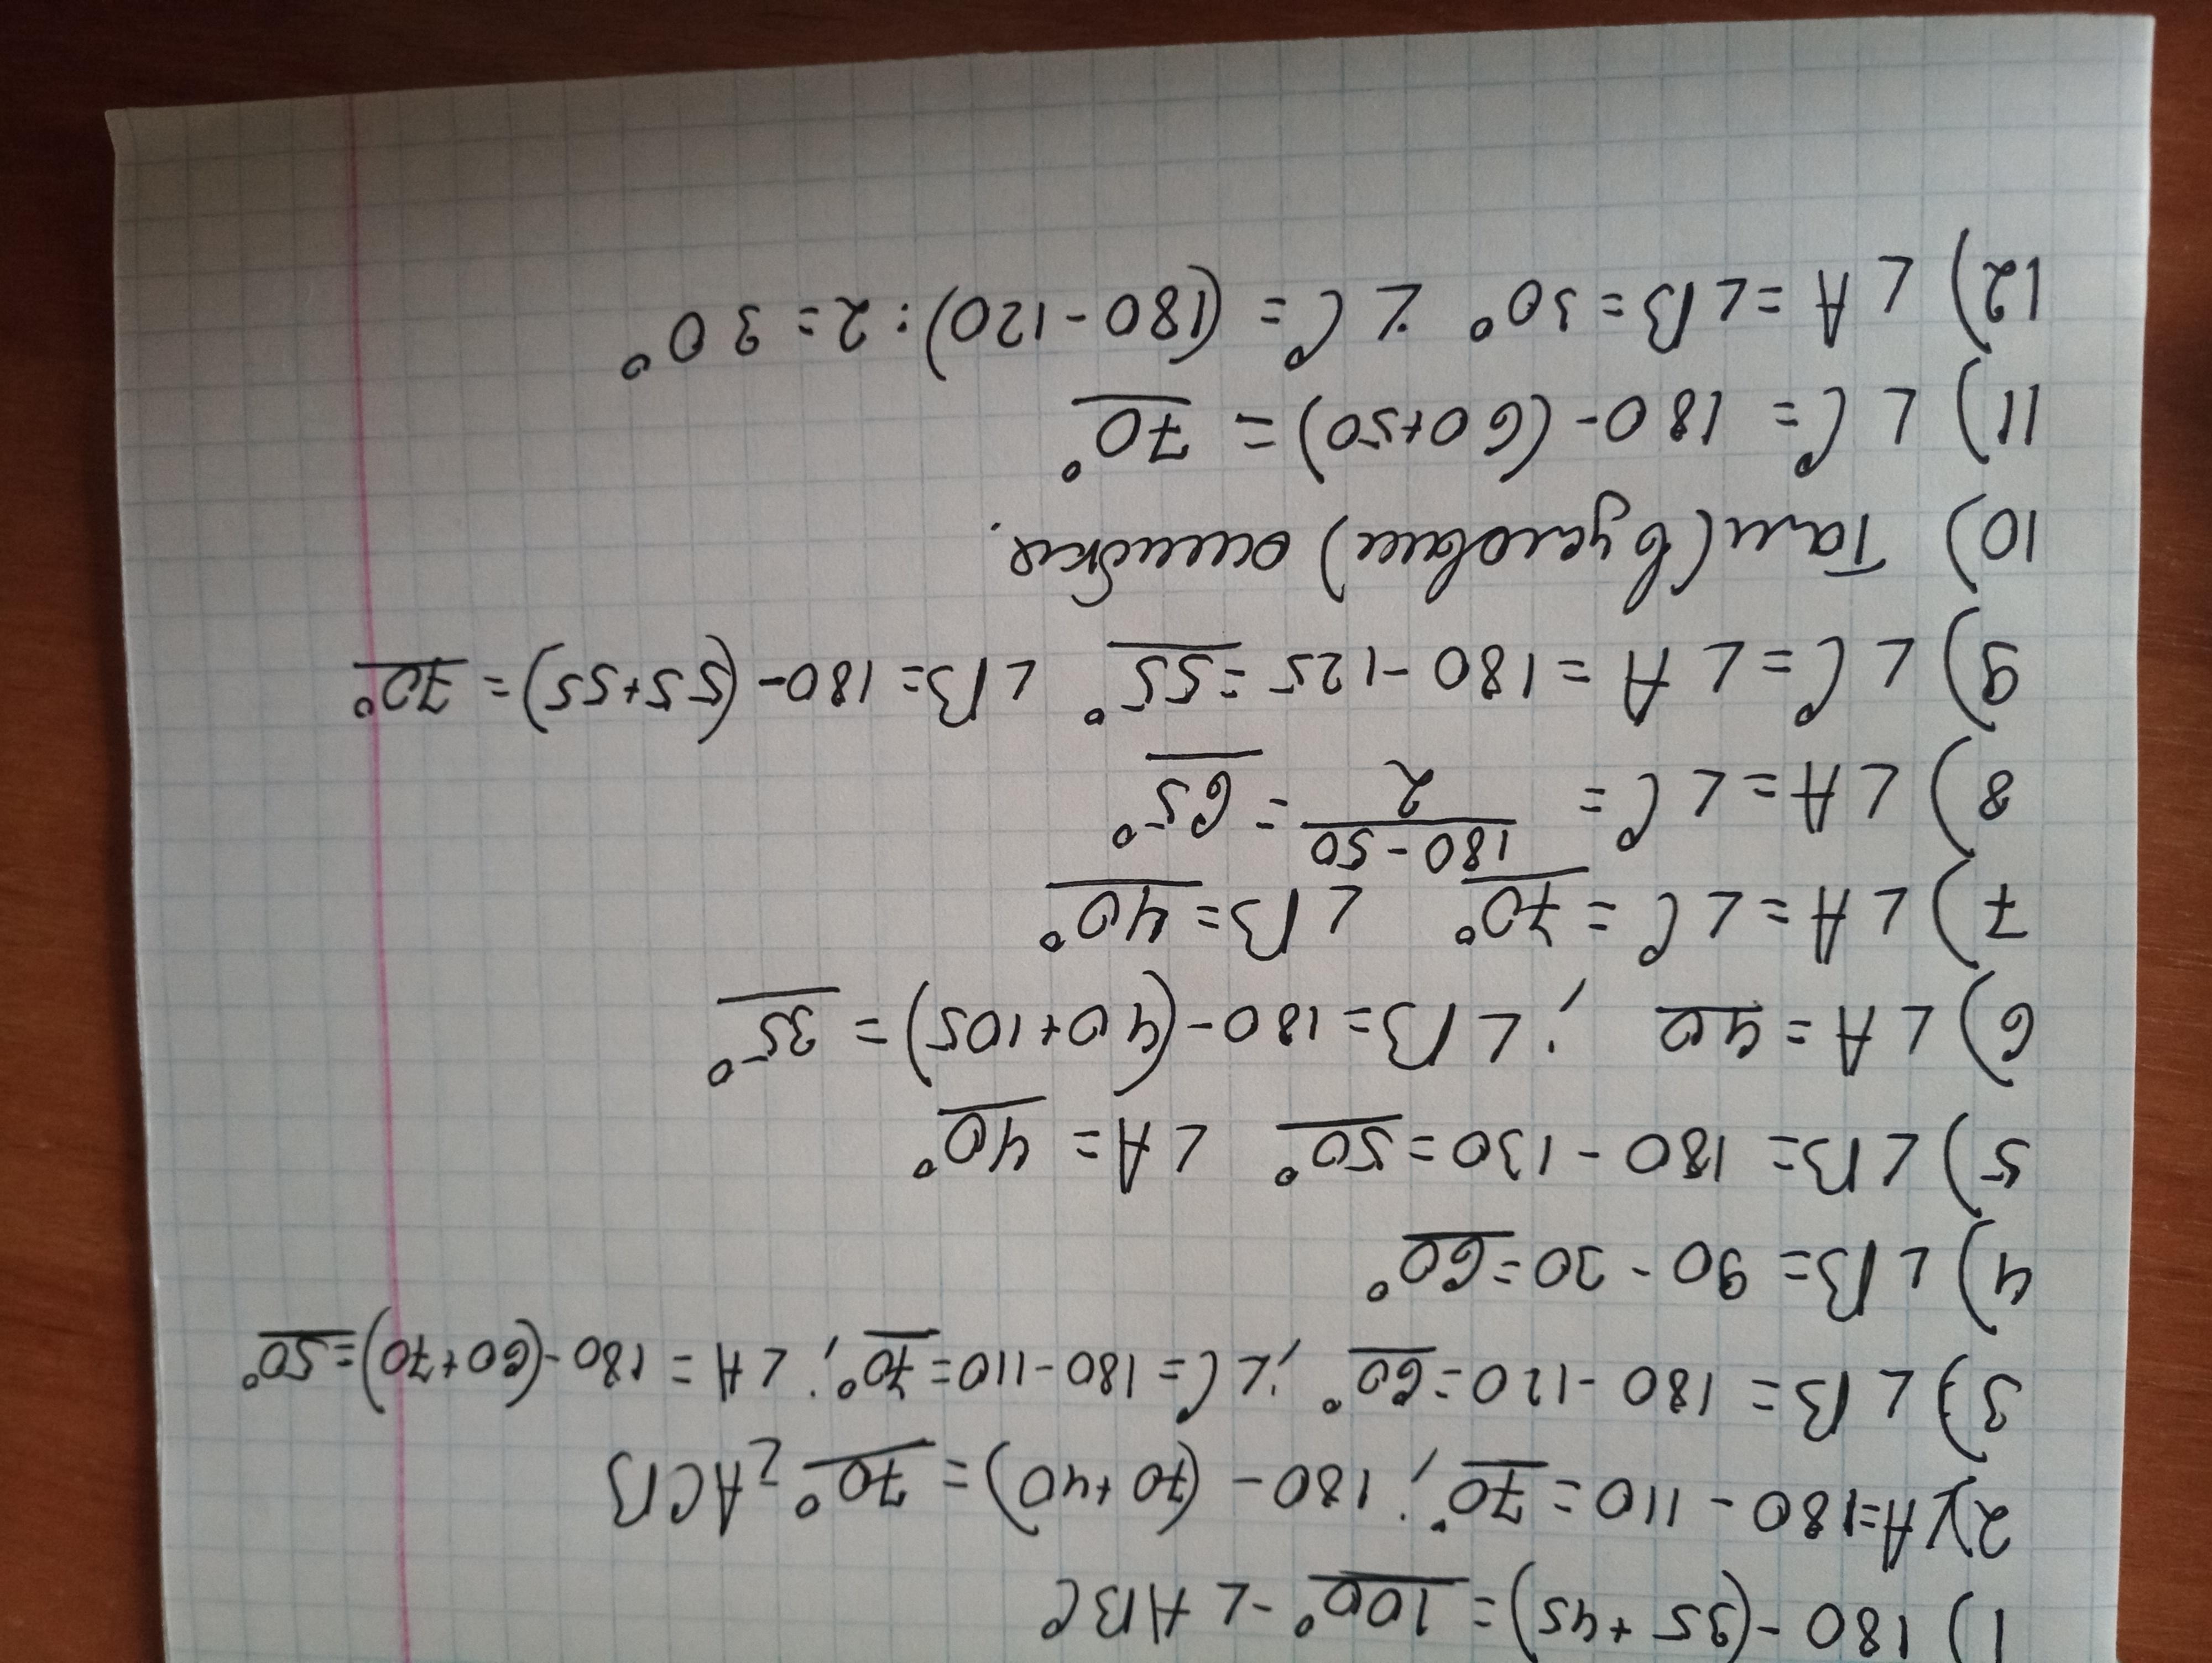 1) 180-(35+45)=100°-∠ABC
2)∠A=180-110=70°; 180-(70+40)=70°-∠ACB
3)∠B=180-120=60°; ∠C=180-110=70°; ∠A=180-(60+70)=50°
4)∠B=90-30=60°
5)∠B=180-130=50° ∠A=40°
6)∠A=40; ∠B=180-(40+105)=35°
7)∠A=∠C=70° ∠B=40°
8)∠A=∠C=\frac{180-50}{2}=65°
9)∠C=∠A=180-125=55° ∠B=180-(55+55)=70°
10) Там(в условии) ошибка.
11)∠C=180-(60+50)=70°
12)∠A=∠B=30° ∠C=(180-120):2=30°